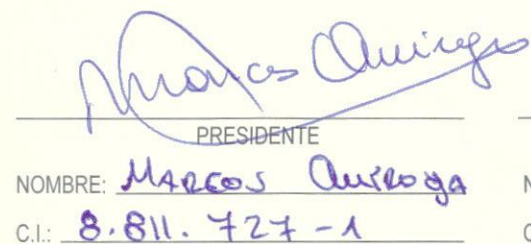 Marcos Quiroga
PRESIDENTE
NOMBRE: MARCOS QUIROGA N
C.I.: 8.811.727-1 C